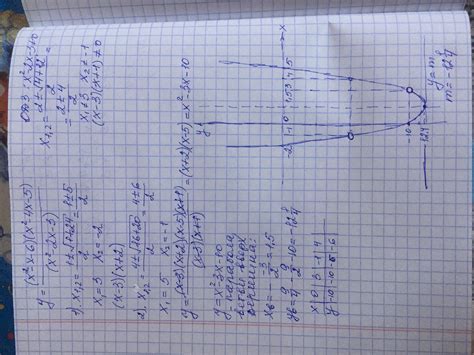 y = (x²-x-6)(x²-4x-5) / (x²-2x-3)
1) x₁,₂ = (1±√1+24)/2 = (1±5)/2
x₁=3 x₂=-2
(x-3)(x+2)
2) x₁,₂ = (4±√16+20)/2 = (4±6)/2
x₁=5 x₂=-1
y = (x-3)(x+2)(x-5)(x+1) / (x-3)(x+1) = (x+2)(x-5) = x²-3x-10
y=x²-3x-10
парабола
ветви вверх
вершина:
xв = -(-3)/2 = 1,5
yв = 9/4 - 9/2 - 10 = -12 1/4
x 0 3 -1 4
y -10 -10 -6 -6
ОДЗ: x²-2x-3≠0
x₁,₂ = (2±√4+12)/2 =
= (2±4)/2
x₁≠3 x₂≠-1
(x-3)(x+1)≠0
y
x
-2 -1 0 1,5 3 4 5
-10
-12 1/4
y=m
m=-12 1/4